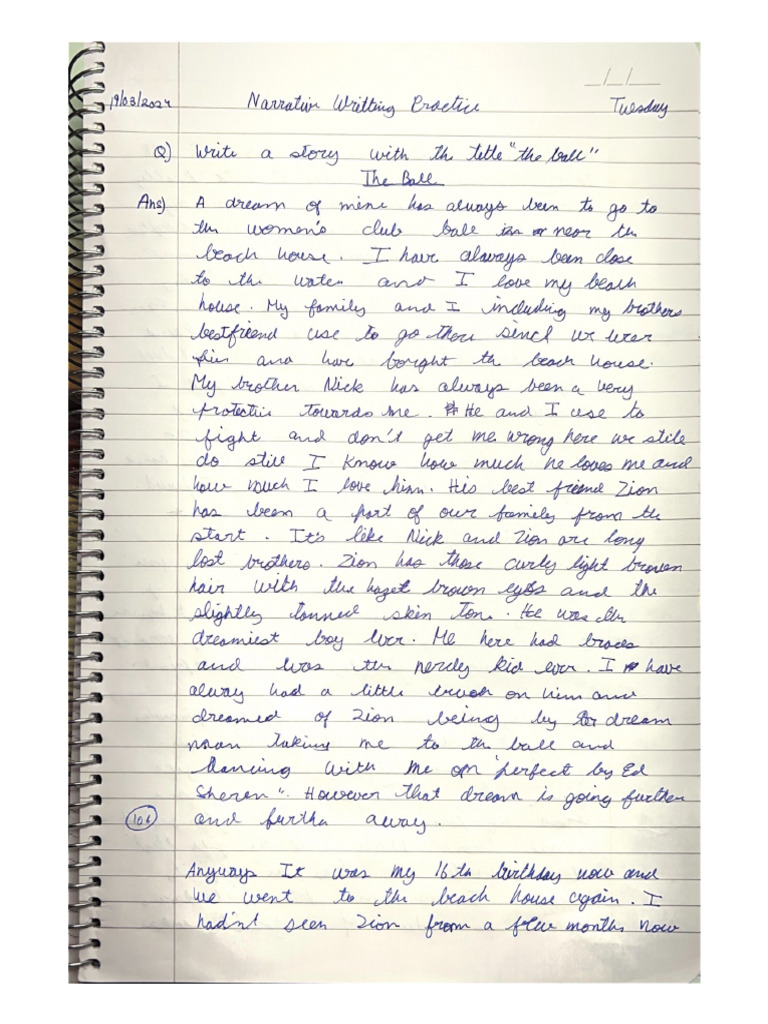 _/_/__
19/03/2024 Narrative Writting Practice Tuesday
Q) Write a story with the title "the ball"
The Ball
Ans) A dream of mine has always been to go to
the women's club ball near the
beach house. I have always been close
to the water and I love my beach
house. My family and I including my brothers
bestfriend use to go there since we were
and have bought the beach house.
My brother Nick has always been a very
protective towards me. He and I use to
fight and don't get me wrong here we still
do still I know how much he loves me and
how much I love him. His best friend Zion
has been a part of our family from the
start. It's like Nick and Zion are long
lost brothers. Zion has those curly light brown
hair with the hazel brown eyes and the
slightly tanned skin tone. He was the
dreamiest boy ever. Me here had braces
and was the nerdy kid ever. I have
alway had a little crush on him and
dreamed of Zion being by dream
man taking me to the ball and
dancing with me on "perfect by Ed
Sheren". However that dream is going further
106 and further away.
Anyways It was my 16th birthday now and
we went to the beach house again. I
hadn't seen Zion from a few months now